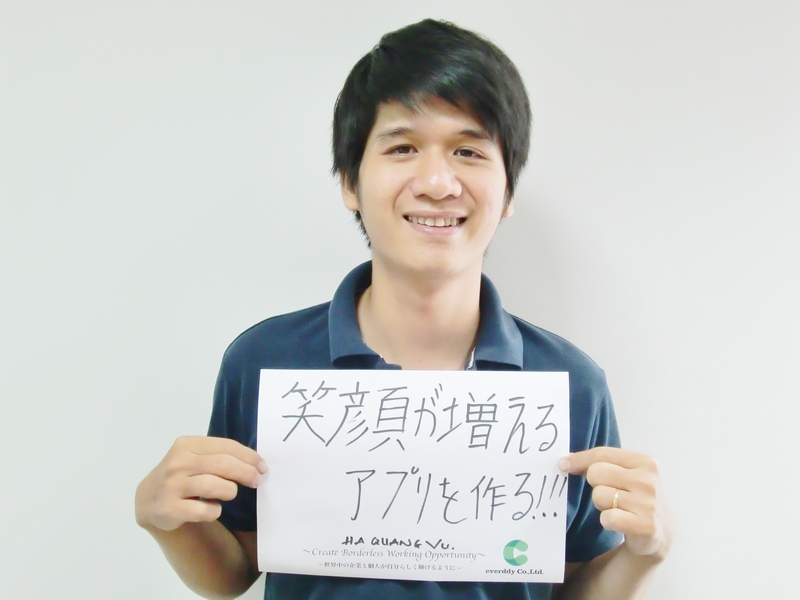 笑顔が増える
アプリを作る!!!
HA QUANG VU.
~Create Borderless Working Opportunity~
~世界中の企業と個人が自分らしく輝けるように~
everddy Co.,Ltd.